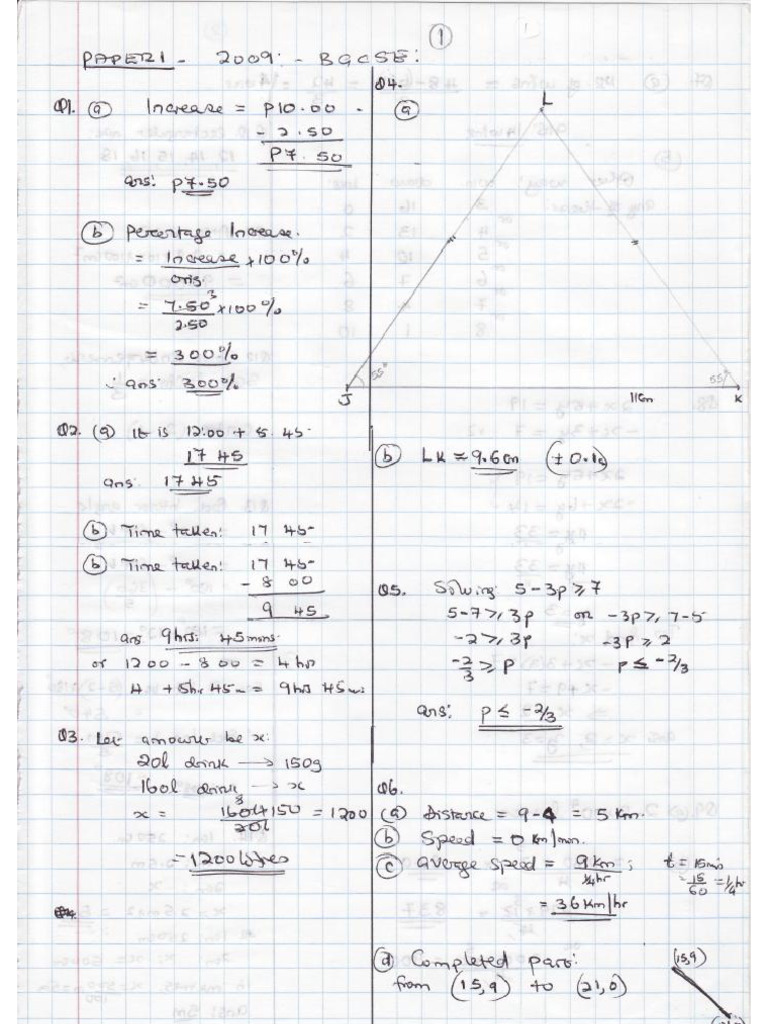 1
PAPER 1 - 2009 - BGCSE:
Q1. (a) Increase = P10.00 -
- 2.50
P7.50
ans: P7.50
(b) Percentage Increase.
= Increase × 100%
orig
= 7.50 3 × 100%
2.50
= 300%
∴ ans 300%
Q2. (a) It is 12:00 + 5.45
17 45
ans: 17 45
(b) Time taken: 17 45
(b) Time taken: 17 45
- 8 00
9 45
ans 9hrs 45mins
or 1200 - 800 = 4 hr
4 + 5hr 45m = 9hrs 45mins
Q3. Let amount be x:
20l drink → 150g
160l drink → x
x = 160l × 150 = 1200
8
20l
= 1200 litres
Q4.
(a)
L
55°
55°
J
11cm
K
(b) LK ≈ 9.6cm (± 0.1)
Q5. Solving 5 - 3p ≥ 7
5-7 ≥ 3p or -3p ≥ 7-5
-2 ≥ 3p -3p ≥ 2
-2/3 ≥ p p ≤ -2/3
ans: p ≤ -2/3
Q6.
(a) Distance = 9-4 = 5 km.
(b) Speed = 0 km/min.
(c) average speed = 9km ; t = 15mins
1/4hr = 15/60 = 1/4 hr
= 36 km/hr
(d) Completed part:
from (15,9) to (21,0)
(15,9)